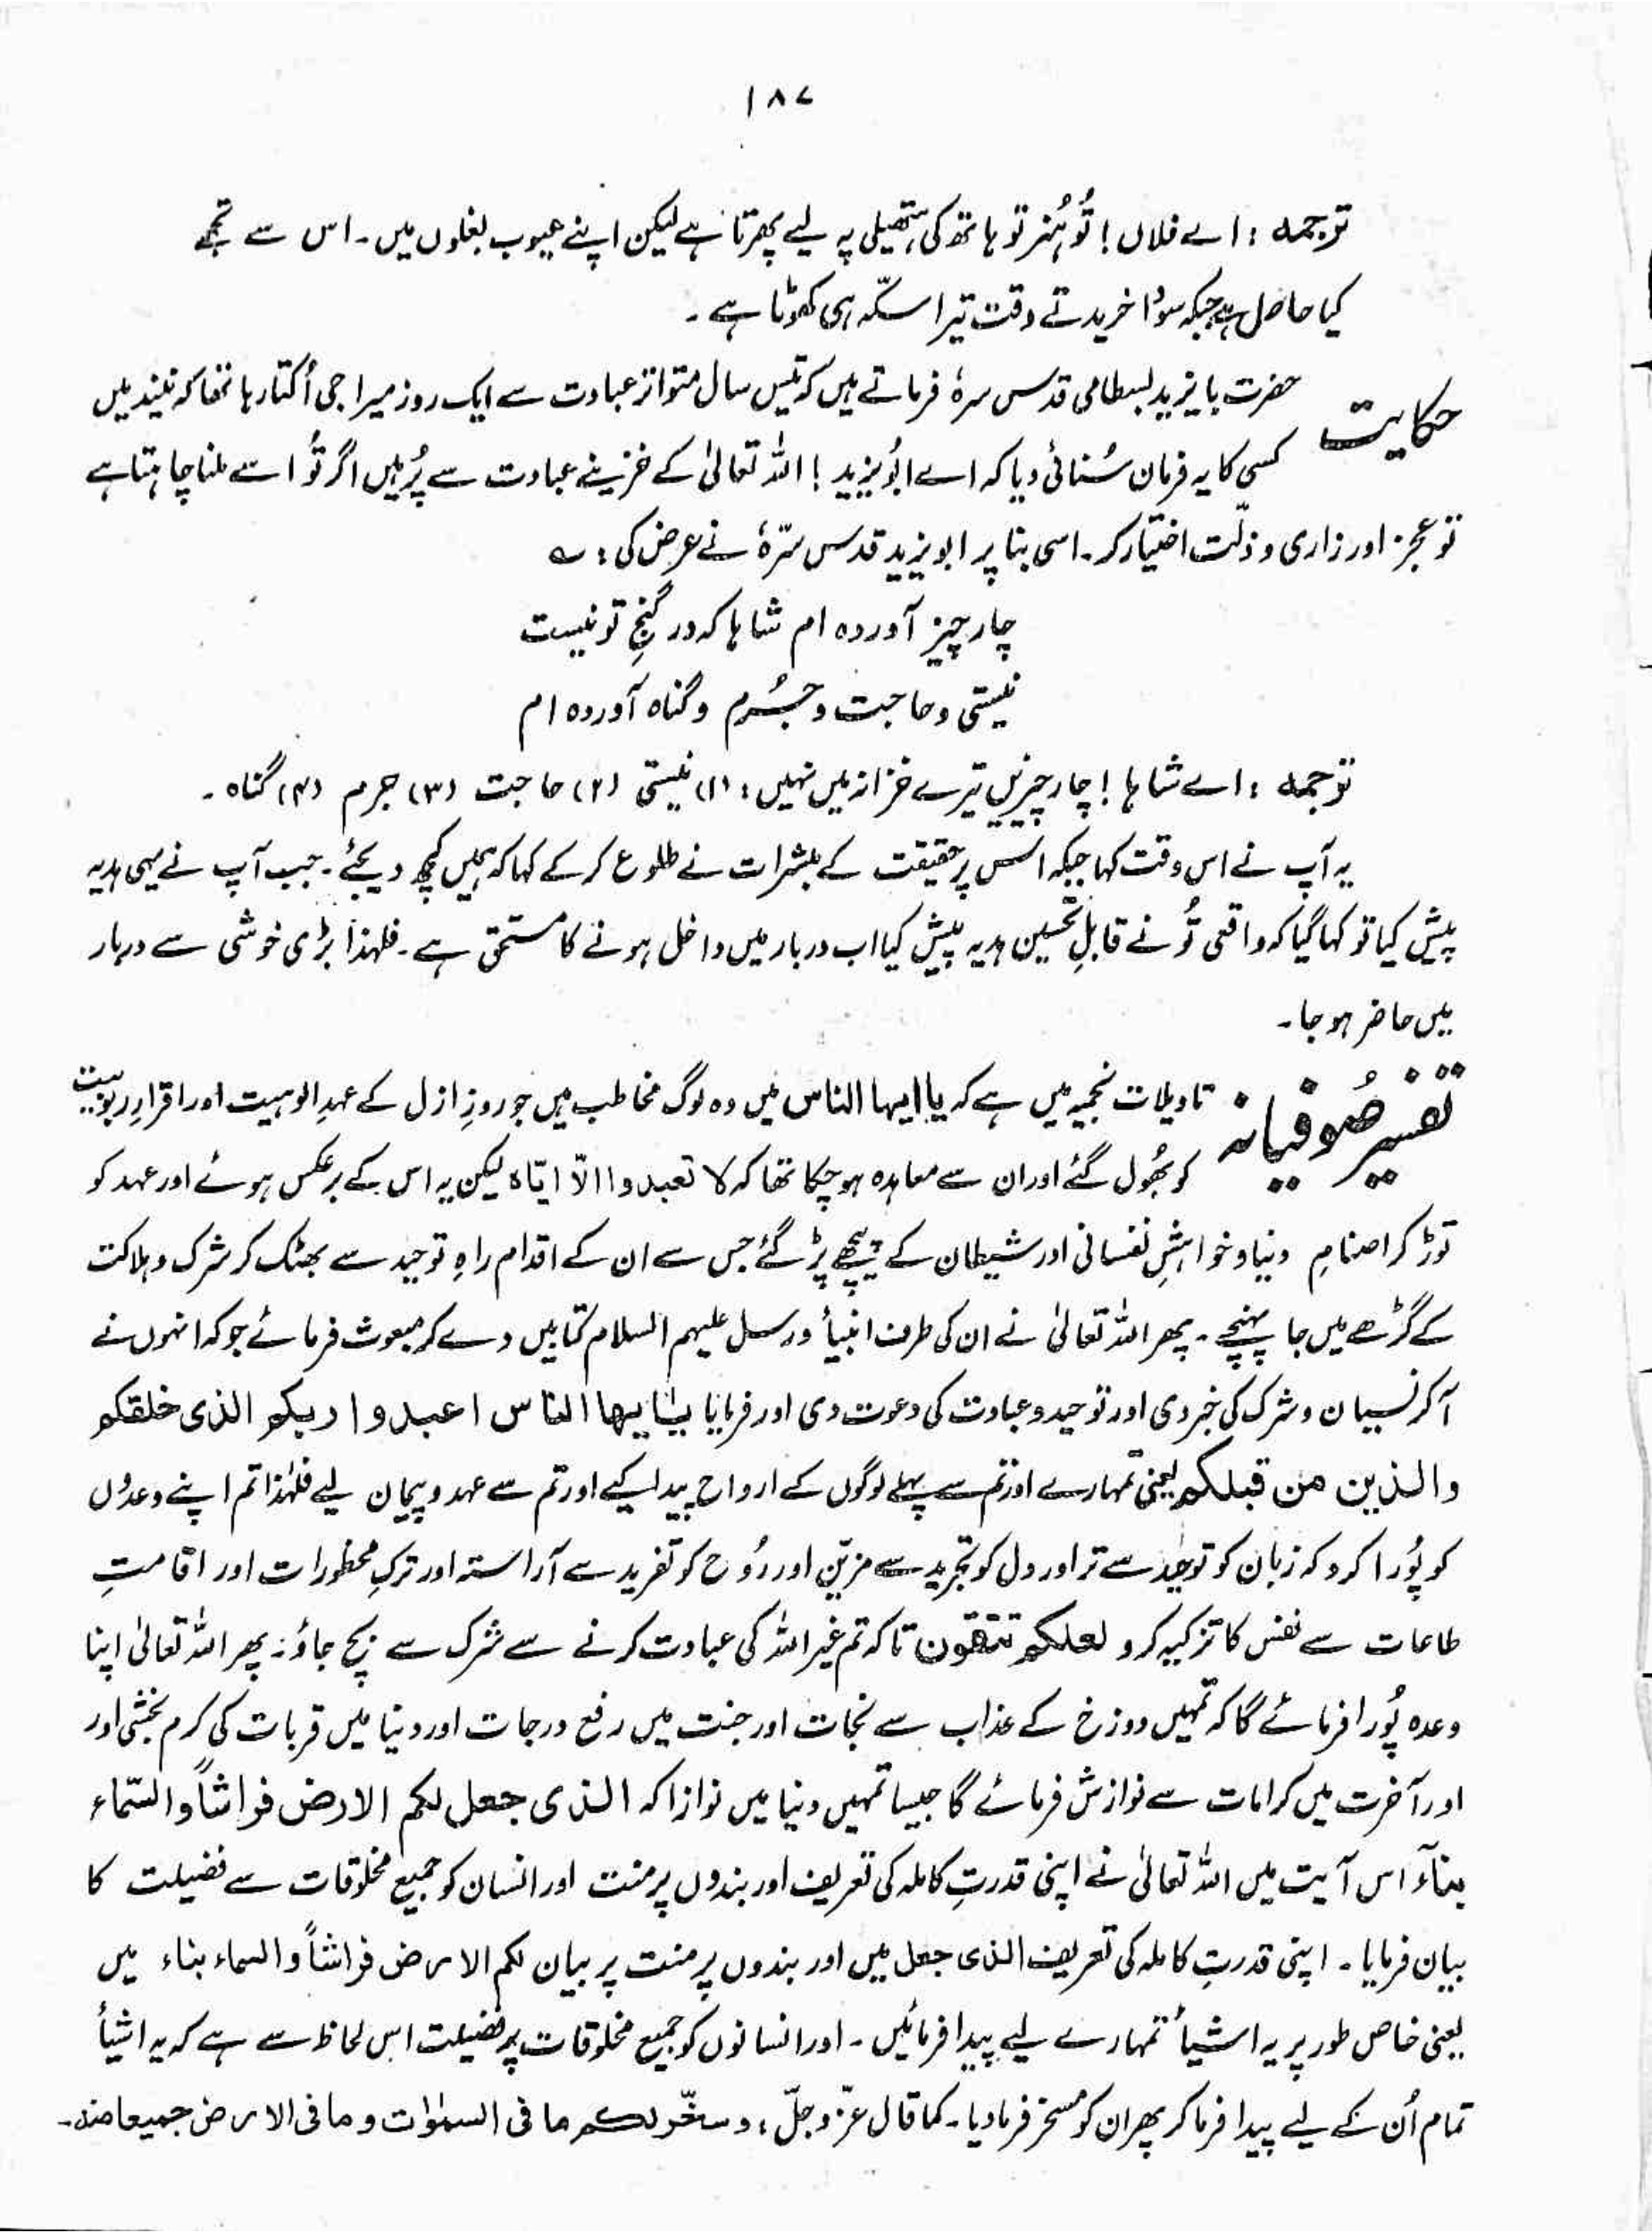 ۱۸۷
ترجمہ : اے فلاں ! تُو ہُنر تو ہاتھ کی ہتھیلی پہ لیے پھرتا ہے لیکن اپنے عیوب بغلوں میں ۔ اس سے تجھے
کیا حاصل ہے جبکہ سودا خریدتے وقت تیرا سکّہ ہی کھوٹا ہے ۔
حکایت حضرت بایزید بسطامی قدس سرہٗ فرماتے ہیں کہ تیس سال متواتر عبادت سے ایک روز میرا جی اُکتا رہا تھا کہ نیند میں
کسی کا یہ فرمان سُنائی دیا کہ اے ابُو یزید ! اللہ تعالیٰ کے خزینے عبادت سے پُر ہیں اگر تُو اسے ملنا چاہتا ہے
تو عجز اور زاری و ذلّت اختیار کر ۔ اسی بنا پر ابو یزید قدس سرّہٗ نے عرض کی : ؎
چار چیز آوردہ ام شاہا کہ در گنجِ تو نیست
نیستی و حاجت و جُرم و گناہ آوردہ ام
ترجمہ : اے شاہا ! چار چیزیں تیرے خزانہ میں نہیں : (۱) نیستی (۲) حاجت (۳) جرم (۴) گناہ ۔
یہ آپ نے اس وقت کہا جبکہ اس پر حقیقت کے مبشرات نے طلوع کر کے کہا کہ ہمیں کچھ دیجئے ۔ جب آپ نے یہی ہدیہ
پیش کیا تو کہا گیا کہ واقعی تُو نے قابلِ تحسین ہدیہ پیش کیا اب دربار میں داخل ہونے کا مستحق ہے ۔ فلہذا بڑی خوشی سے دربار
میں حاضر ہو جا ۔
تفسیر صُوفیانہ تاویلات نجمیہ میں ہے کہ یا ایہا الناس میں وہ لوگ مخاطب ہیں جو روزِ ازل کے عہدِ الوہیت اور اقرارِ ربوبیت
کو بھُول گئے اور ان سے معاہدہ ہو چکا تھا کہ لا تعبدوا الّا ایّاہ لیکن یہ اس کے برعکس ہوئے اور عہد کو
توڑ کر اصنامِ دنیا و خواہشِ نفسانی اور شیطان کے پیچھے پڑ گئے جس سے ان کے اقدام راہِ توحید سے بھٹک کر شرک و ہلاکت
کے گڑھے میں جا پہنچے ۔ پھر اللہ تعالیٰ نے ان کی طرف انبیأ ورسل علیہم السلام کتابیں دے کر مبعوث فرمائے جو کہ انہوں نے
آکر نسیان و شرک کی خبر دی اور توحید و عبادت کی دعوت دی اور فرمایا یٰایہا الناس اعبدوا ربکم الذی خلقکم
والذین من قبلکم یعنی تمہارے اور تم سے پہلے لوگوں کے ارواح پیدا کیے اور تم سے عہد و پیمان لیے فلہٰذا تم اپنے وعدوں
کو پُورا کرو کہ زبان کو توحید سے تر اور دل کو تجرید سے مزیّن اور رُوح کو تفرید سے آراستہ اور ترکِ محظورات اور اقامتِ
طاعات سے نفس کا تزکیہ کرو لعلکم تتقون تاکہ تم غیر اللہ کی عبادت کرنے سے شرک سے بچ جاؤ ۔ پھر اللہ تعالیٰ اپنا
وعدہ پُورا فرمائے گا کہ تمہیں دوزخ کے عذاب سے نجات اور جنت میں رفع درجات اور دنیا میں قربات کی کرم بخشی اور
اور آخرت میں کرامات سے نوازش فرمائے گا جیسا تمہیں دنیا میں نوازا کہ الذی جعل لکم الارض فراشاً والسّماء
بنآء اس آیت میں اللہ تعالیٰ نے اپنی قدرتِ کاملہ کی تعریف اور بندوں پر منت اور انسان کو جمیع مخلوقات سے فضیلت کا
بیان فرمایا ۔ اپنی قدرتِ کاملہ کی تعریف الذی جعل میں اور بندوں پر منت پر بیان لکم الارض فراشاً والسماء بناء میں
یعنی خاص طور پر یہ اشیأ تمہارے لیے پیدا فرمائیں ۔ اور انسانوں کو جمیع مخلوقات پر فضیلت اس لحاظ سے ہے کہ یہ اشیأ
تمام اُن کے لیے پیدا فرما کر پھر ان کو مسخر فرما دیا ۔ کما قال عزّ و جلّ : وسخّر لکم ما فی السمٰوٰت وما فی الارض جمیعا منہ ۔